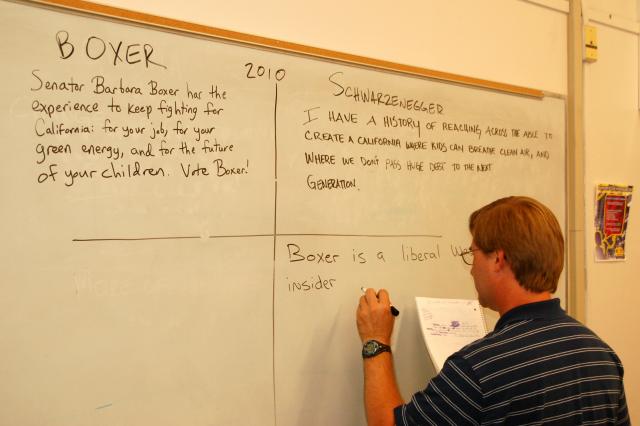 BOXER
Senator Barbara Boxer has the
experience to keep fighting for
California: for your job, for your
green energy, and for the future
of your children. Vote Boxer!
2010
SCHWARZENEGGER
I HAVE A HISTORY OF REACHING ACROSS THE AISLE TO
CREATE A CALIFORNIA WHERE KIDS CAN BREATHE CLEAN AIR, AND
WHERE WE DON'T PASS HUGE DEBT TO THE NEXT
GENERATION.
Boxer is a liberal
insider